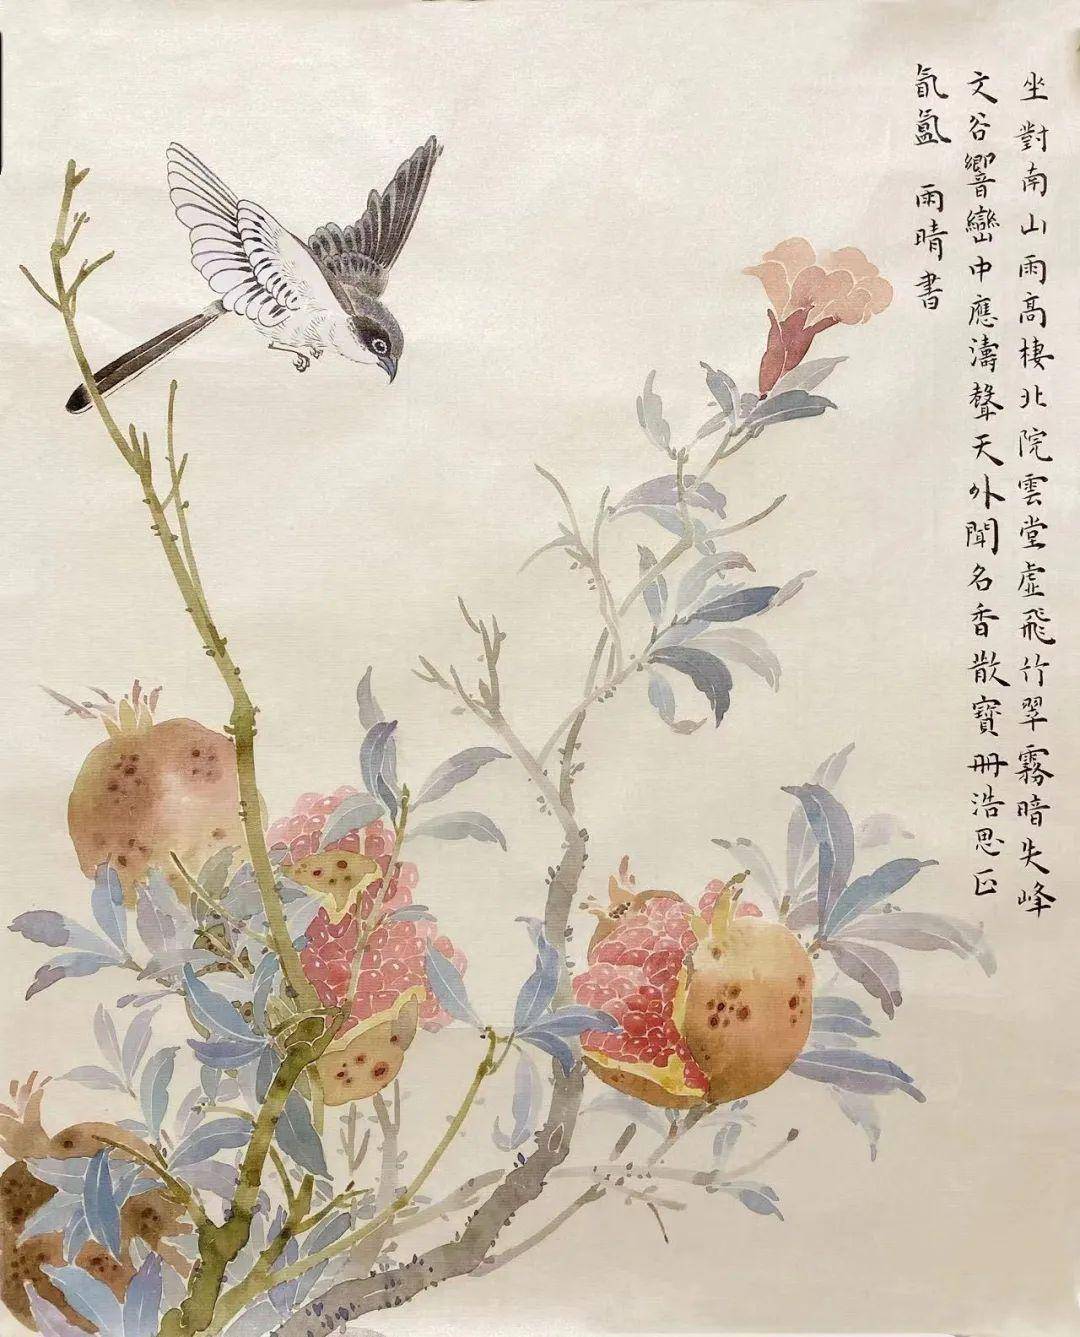 坐對南山雨高棲北院雲堂虛飛竹翠霧暗失峰
文谷響巒中應濤聲天外聞名香散寶冊浩思正
氤氳 雨晴書